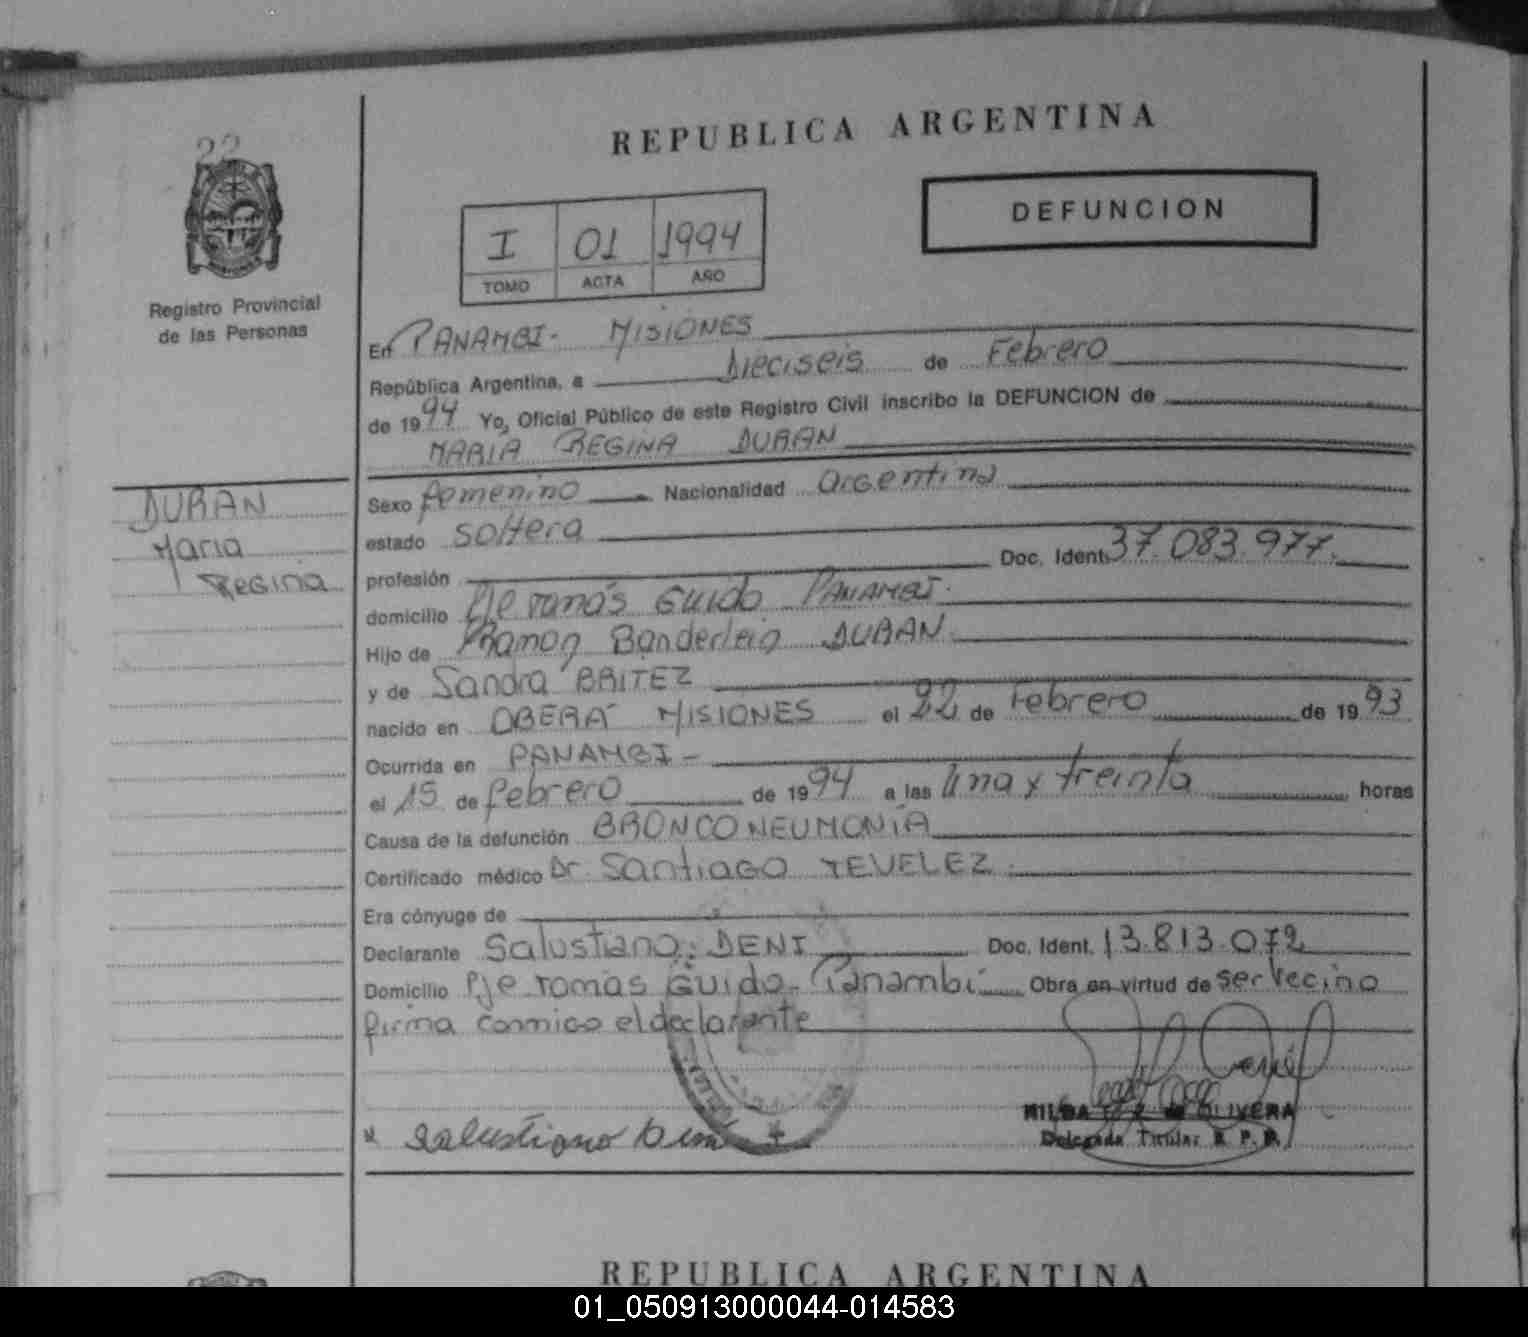 22
REPUBLICA ARGENTINA
DEFUNCION
I 01 1994
TOMO ACTA AÑO
Registro Provincial
de las Personas
En PANAMBI- MISIONES
República Argentina, a Dieciseis de Febrero
de 1994 Yo, Oficial Público de este Registro Civil inscribo la DEFUNCION de
MARIA REGINA DURAN
DURAN
Maria
Regina
Sexo femenino Nacionalidad argentina
estado soltera
profesión Doc. Ident. 37.083.977.
domicilio Pje Tomás Guido PANAMBI.
Hijo de Ramon Banderlein DURAN.
y de Sandra BRITEZ
nacido en OBERÁ MISIONES el 22 de Febrero de 1993
Ocurrida en PANAMBI-
el 15 de febrero de 1994 a las una y treinta horas
Causa de la defunción BRONCONEUMONÍA
Certificado médico Dr. Santiago TEVELEZ.
Era cónyuge de
Declarante Salustiano DENI Doc. Ident. 13.813.072
Domicilio Pje Tomás Guido- Panambí Obra en virtud de ser vecino
firma conmigo el declarante
Salustiano Deni
HILDA de OLIVERA
Delegada Titular R. P. P.
REPUBLICA ARGENTINA
01_050913000044-014583